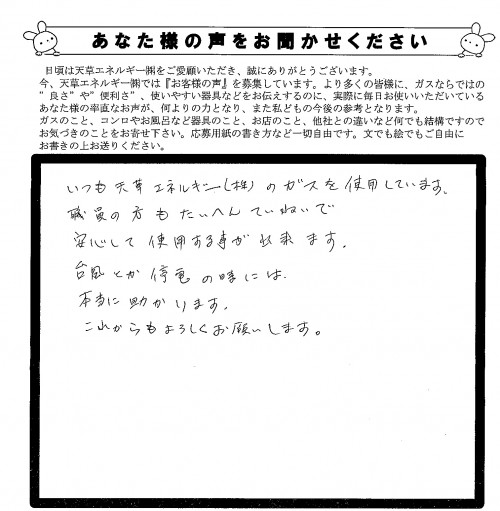 あなた様の声をお聞かせください
日頃は天草エネルギー㈱をご愛顧いただき、誠にありがとうございます。
今、天草エネルギー㈱では『お客様の声』を募集しています。より多くの皆様に、ガスならではの
”良さ”や”便利さ”、使いやすい器具などをお伝えするのに、実際に毎日お使いいただいている
あなた様の率直なお声が、何よりの力となり、また私どもの今後の参考となります。
ガスのこと、コンロやお風呂など器具のこと、お店のこと、他社との違いなど何でも結構ですので
お気づきのことをお寄せ下さい。応募用紙の書き方など一切自由です。文でも絵でもご自由に
お書きの上お送りください。
いつも天草エネルギー(株)のガスを使用しています。
職員の方もたいへんていねいで
安心して使用する事が出来ます。
台風とか停電の時には
本当に助かります。
これからもよろしくお願いします。